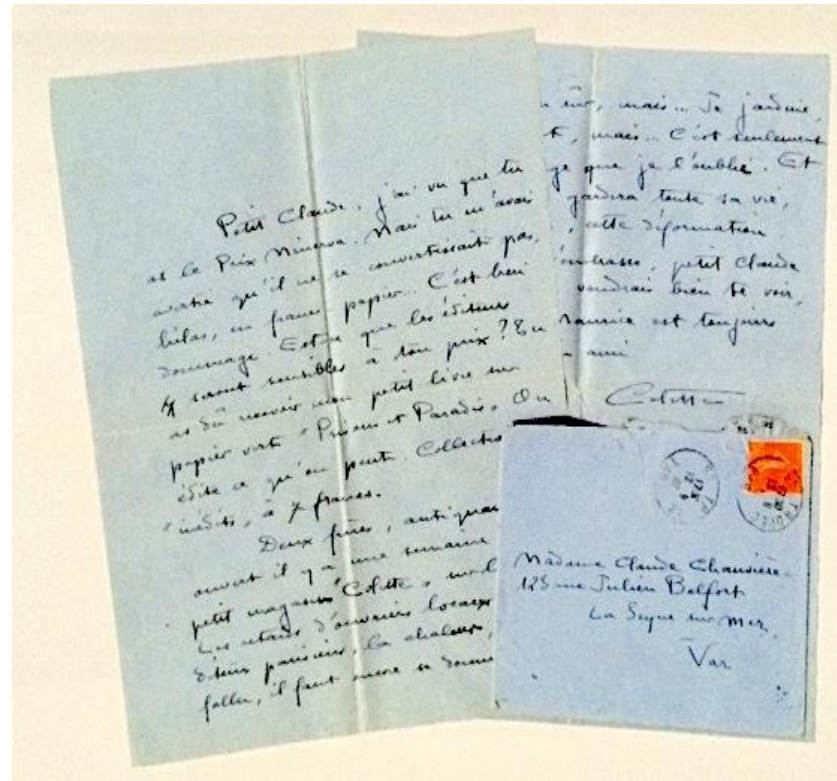 Petit Claude, j'ai vu que tu
as le Prix Minerva. Mais tu m'avais
avertie qu'il ne se convertissait pas,
hélas, en francs-papier... C'est bien
dommage. Est-ce que les éditeurs
seront sensibles à ton prix? Tu
as dû recevoir mon petit livre sur
papier vert « Prisons et Paradis ». On
édite ce qu'on peut. Collection
« inédits », à 7 francs.
Deux frères, antiquai
ouvert il y a une semaine
petit magasin "Colette"
Les retards d'ouvriers locaux
parisiens, la chaleur,
fallu, il faut encore se donne
sûr, mais... Je jardine,
mais... C'est seulement
que je l'oublie. Et
gardera toute sa vie,
cette déformation
embrasse, petit Claude
voudrais bien te voir,
Maurice est toujours
ami
Colette
Madame Claude Chauvière
123 rue Julien Belfort
La Seyne sur Mer
Var